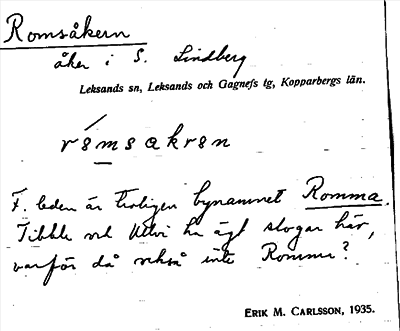 Romsåkern
åker i S. Lindberg
Leksands sn, Leksands och Gagnefs tg, Kopparbergs län.
rɵmsakrɵn
F. leden är troligen bynamnet Romma.
Tibble och Ullvi ha ägt slogar här,
varför då också inte Romma?
ERIK M. CARLSSON, 1935.